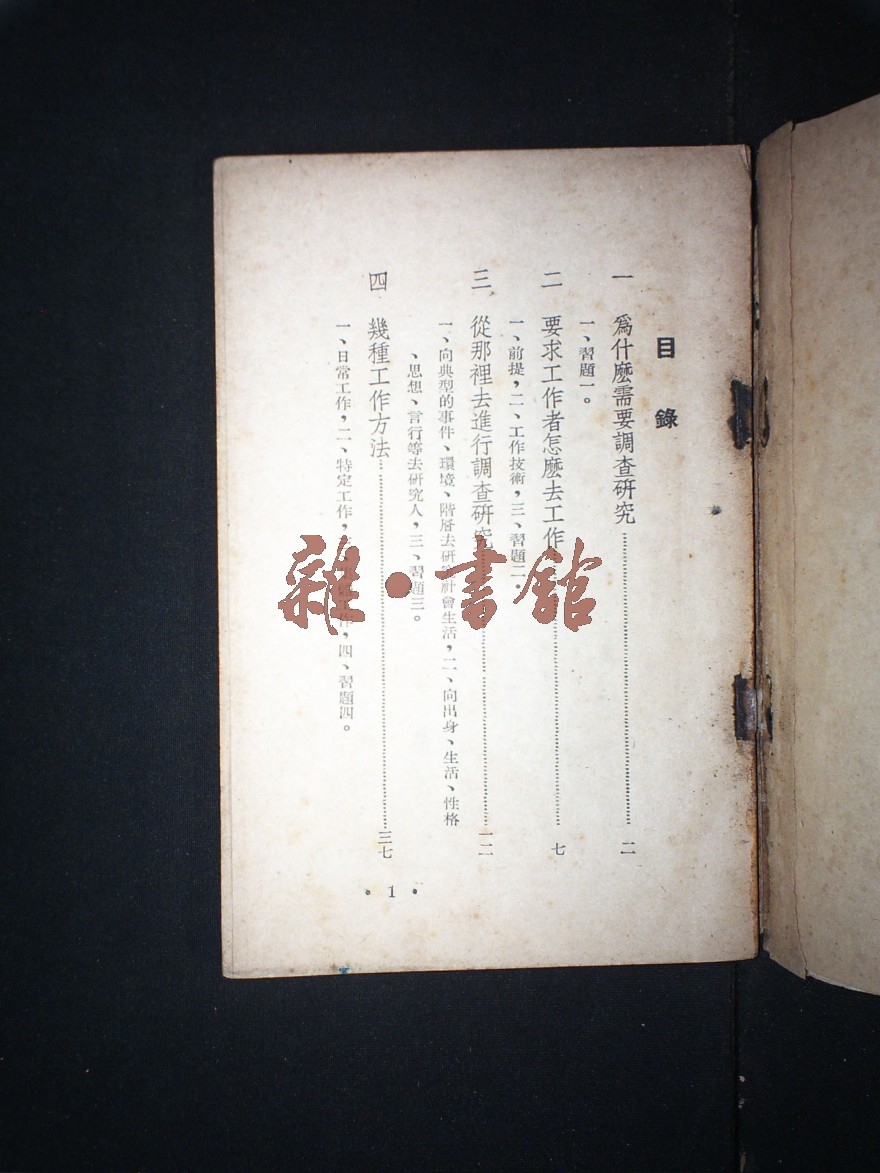 目錄
一 爲什麼需要調查研究……二
一、習題一。
二 要求工作者怎麼去工作……七
一、前提，二、工作技術，三、習題二。
三 從那裡去進行調查研究……一二
一、向典型的事件、環境、階層去研究社會生活，二、向出身、生活、性格
、思想、言行等去研究人，三、習題三。
四 幾種工作方法……三七
一、日常工作，二、特定工作，四、習題四。
• 1 •
雜·書館